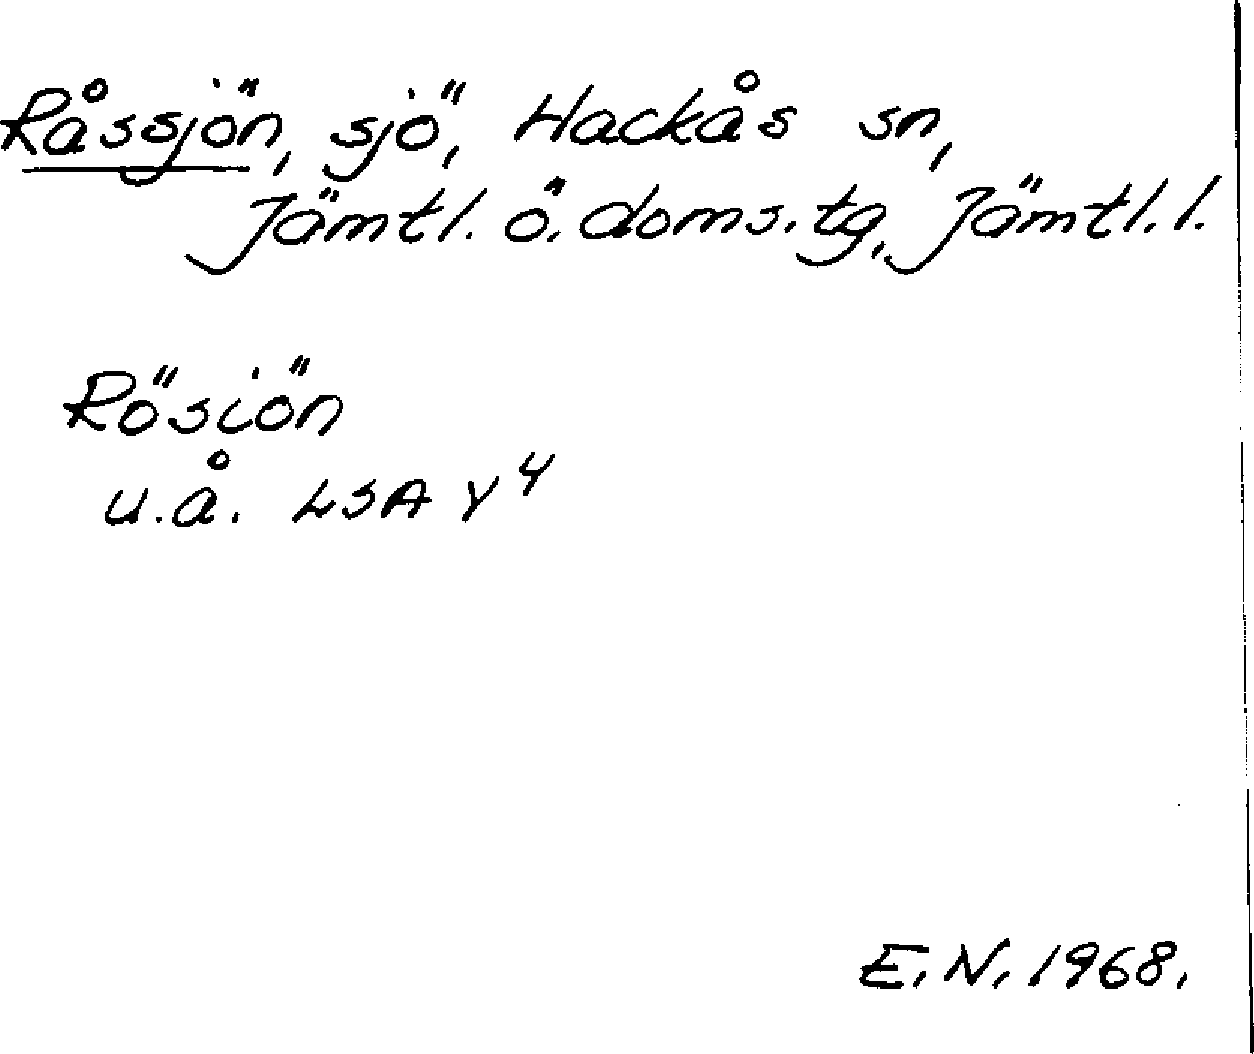 Råssjön, sjö, Hackås sn,
Jämtl. ö. doms.tg, Jämtl. l.
Rösiön
u.å. LSA Y4
E.N. 1968.